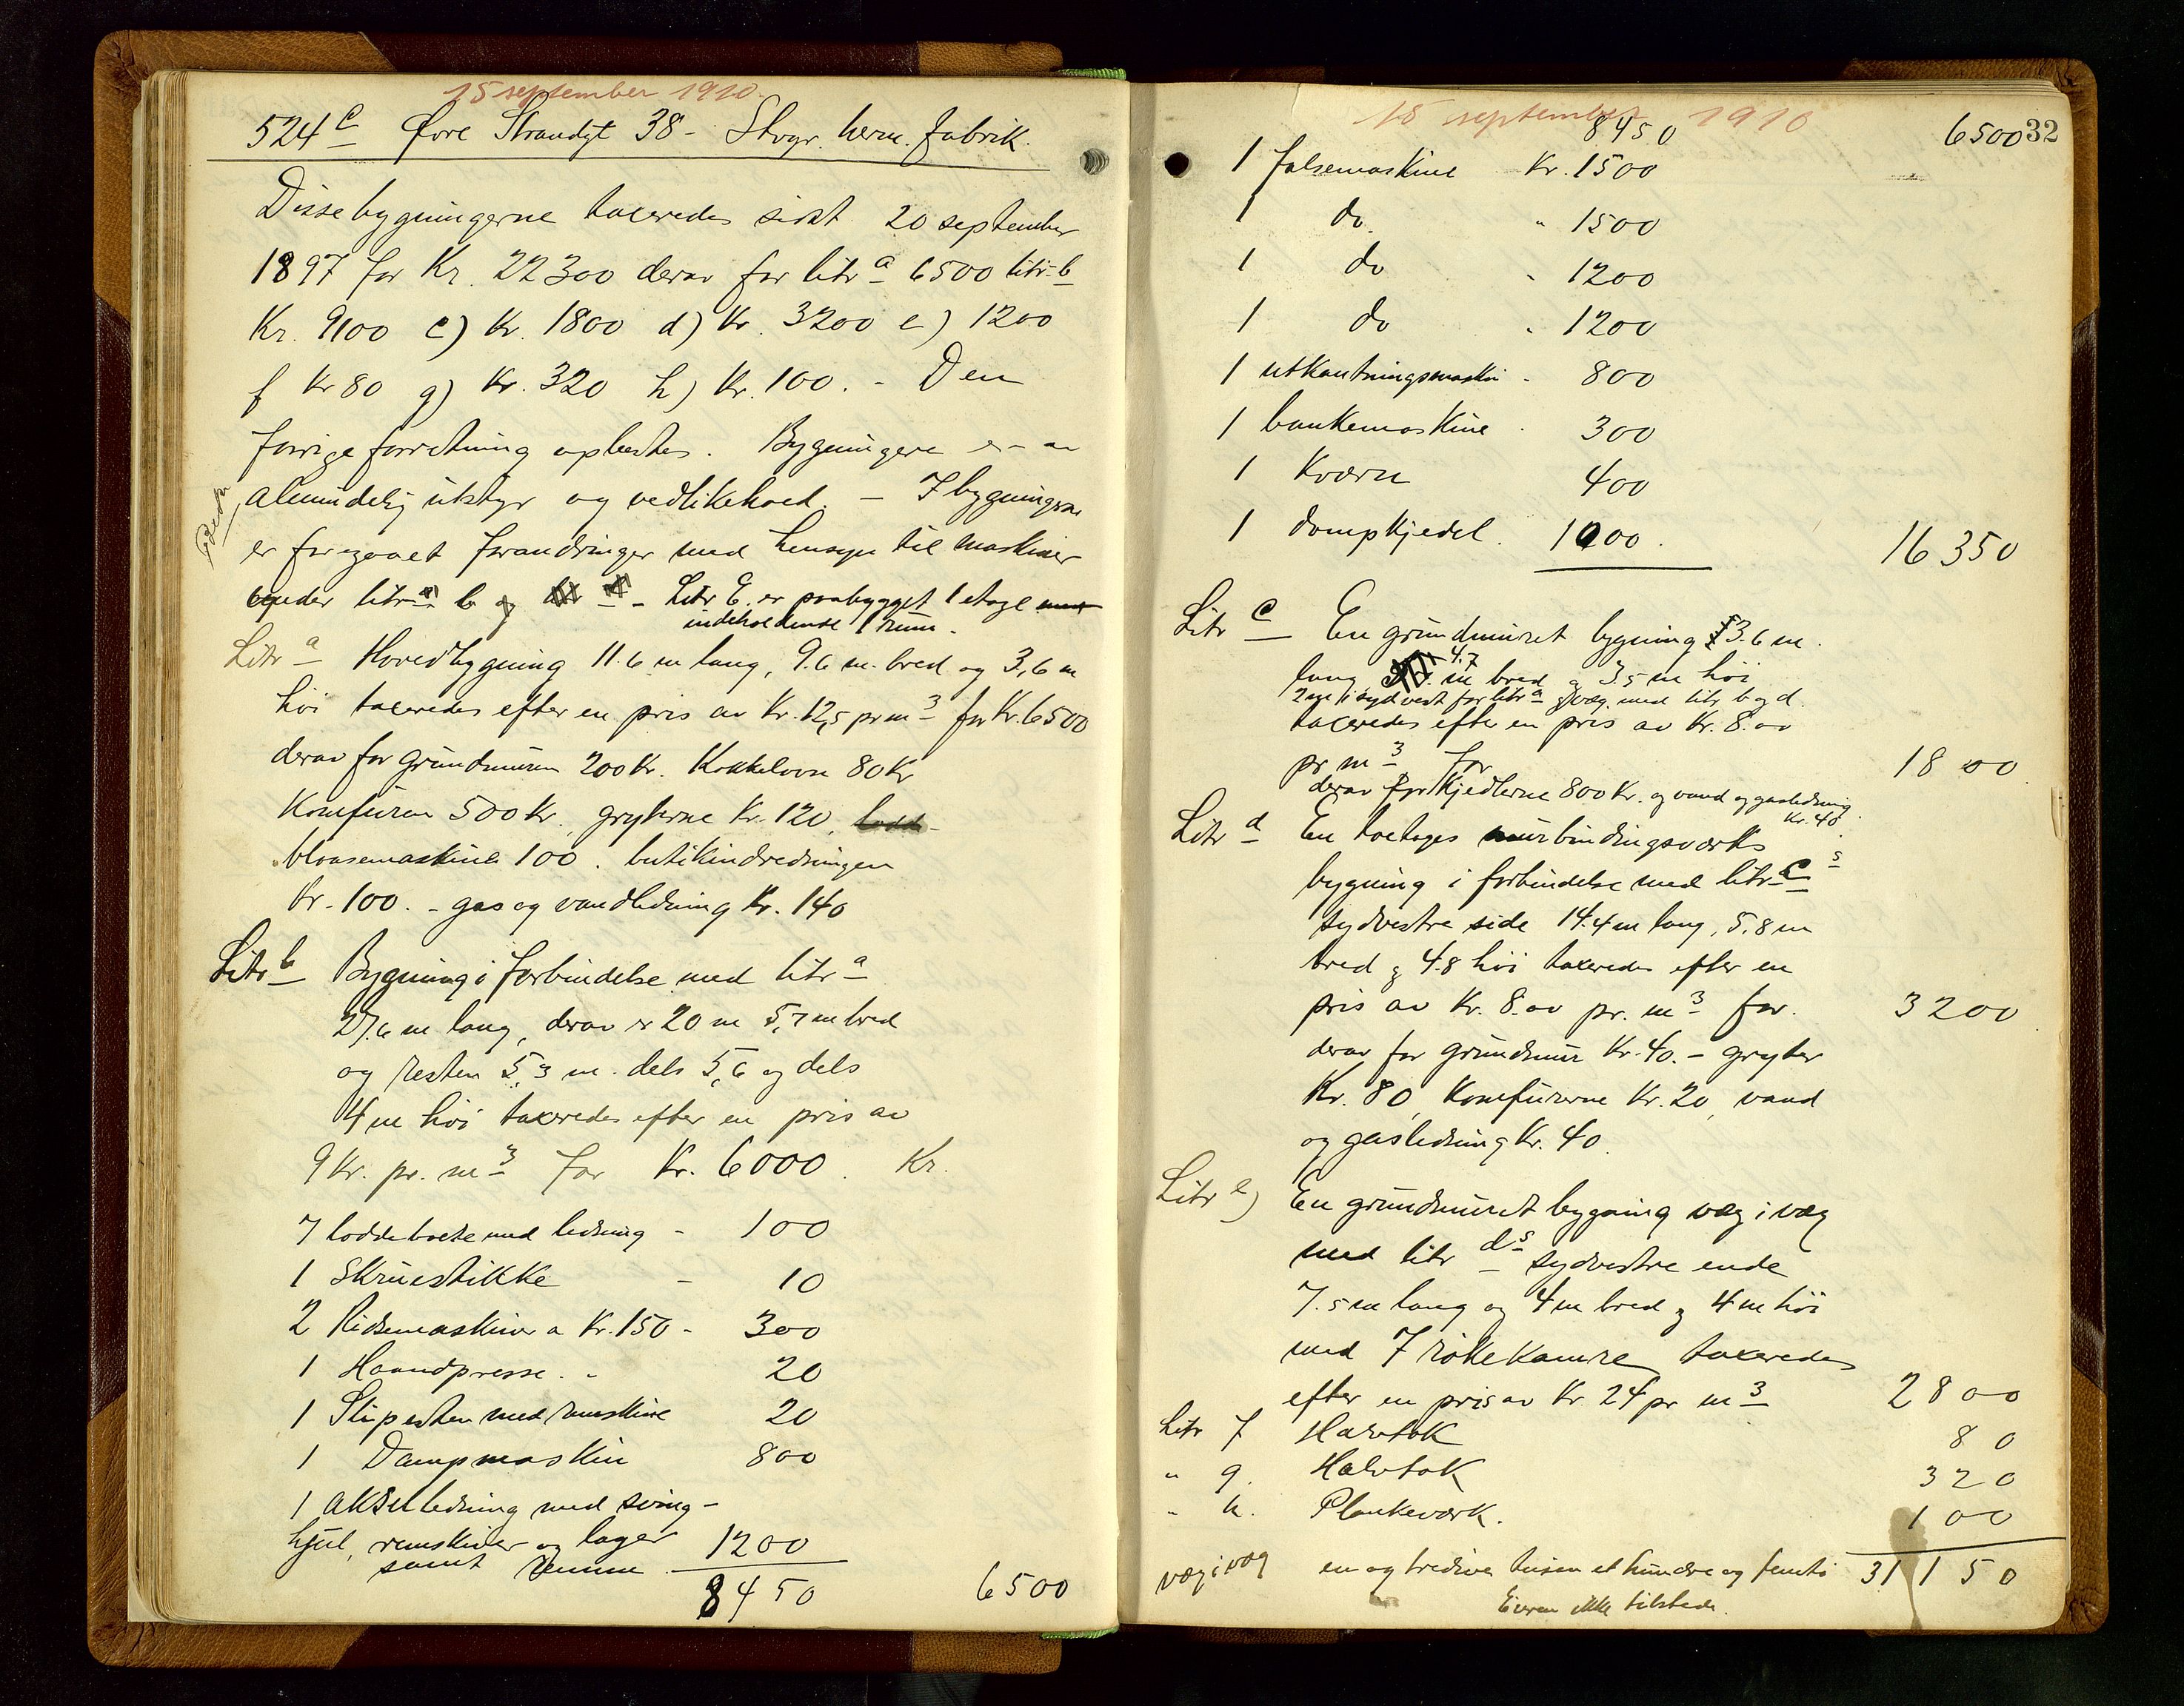 15 september 1910.
524 c Øvre Strandgt 38 - Stvgr. herm. fabrik.
Disse bygningerne taxeredes sidst 20 september
1897 for Kr. 22300 derav for litr a 6500 litr b
Kr. 9100 c) Kr. 1800 d) Kr. 3200 e) 1200
f Kr 80 g) Kr. 320 h) Kr. 100. - Den
forrige forretning oplæstes. Bygningerne er av
almindelig utstyr og vedlikehold. - I bygningerne
er foregaaet forandringer med hensyn til maskiner
under litr a b og - Litr E. er paabygget 1 etage
indeholdende 1 rum.
Litr a Hovedbygning 11.6 m lang, 9.6 m. bred og 3,6 m
høi taxeredes efter en pris av Kr. 12,5 pr m3 for Kr. 6500
derav for grundmuren 200 Kr. Kakkelovn 80 Kr
Komfuren 500 Kr. gryterne Kr. 120,
blaasemaskine 100. butikindredningen
Kr. 100. - gas og vandledning Kr. 140
Litr b Bygning i forbindelse med litr a
27.6 m lang, derav er 20 m 5,7 m bred
og resten 5,3 m. dels 5,6 og dels
4 m høi taxeredes efter en pris av
9 Kr. pr. m3 for Kr. 6000. Kr.
7 loddeborde med ledning - 100
1 Skruestikke - 10
2 Ridsemaskiner a Kr. 150 - 300
1 Haandpresse. - 20
1 Slipesten med remskive 20
1 Dampmaskin 800
1 akselledning med sving-
hjul, remskiver og lager 1200
samt remme.
8450 6500
15 september 1910
8450 6500 32
1 falsemaskine Kr. 1500
1 do. " 1500
1 do " 1200
1 do " 1200
1 utkantningsmaskin - 800
1 bankemaskine . 300
1 Kværn 400
1 dampkjedel. 1000. 16350
Litr c En grundmuret bygning 13.6 m.
lang 4.7 m bred og 3.5 m høi
2 m i sydvest for litr a og væg. med litr b og d.
taxeredes efter en pris av Kr. 8.00
pr m3 for 1800
derav for Kjedlerne 800 Kr. og vand og gasledning
Kr. 40.
Litr d En toetages murbindingsværks
bygning i forbindelse med litr c s
sydvestre side 14.4 m lang, 5.8 m
bred og 4.8 høi taxeredes efter en
pris av Kr. 8.00 pr. m3 for. 3200
derav for grundmur Kr. 40. - gryter
Kr. 80, Komfurerne Kr. 20, vand
og gasledning Kr. 40.
Litr e) En grundmuret bygning væg i væg
med litr d s sydvestre ende
7.5 m lang og 4 m bred og 4 m høi
med 7 røkekamre taxeredes
efter en pris av Kr. 24 pr m3 2800
Litr f Halvtak 80
" g. Halvtak 320
" h. Plankeværk. 100
væg i væg en og tredive tusen et hundre og femti 31150
Eieren ikke tilstede.